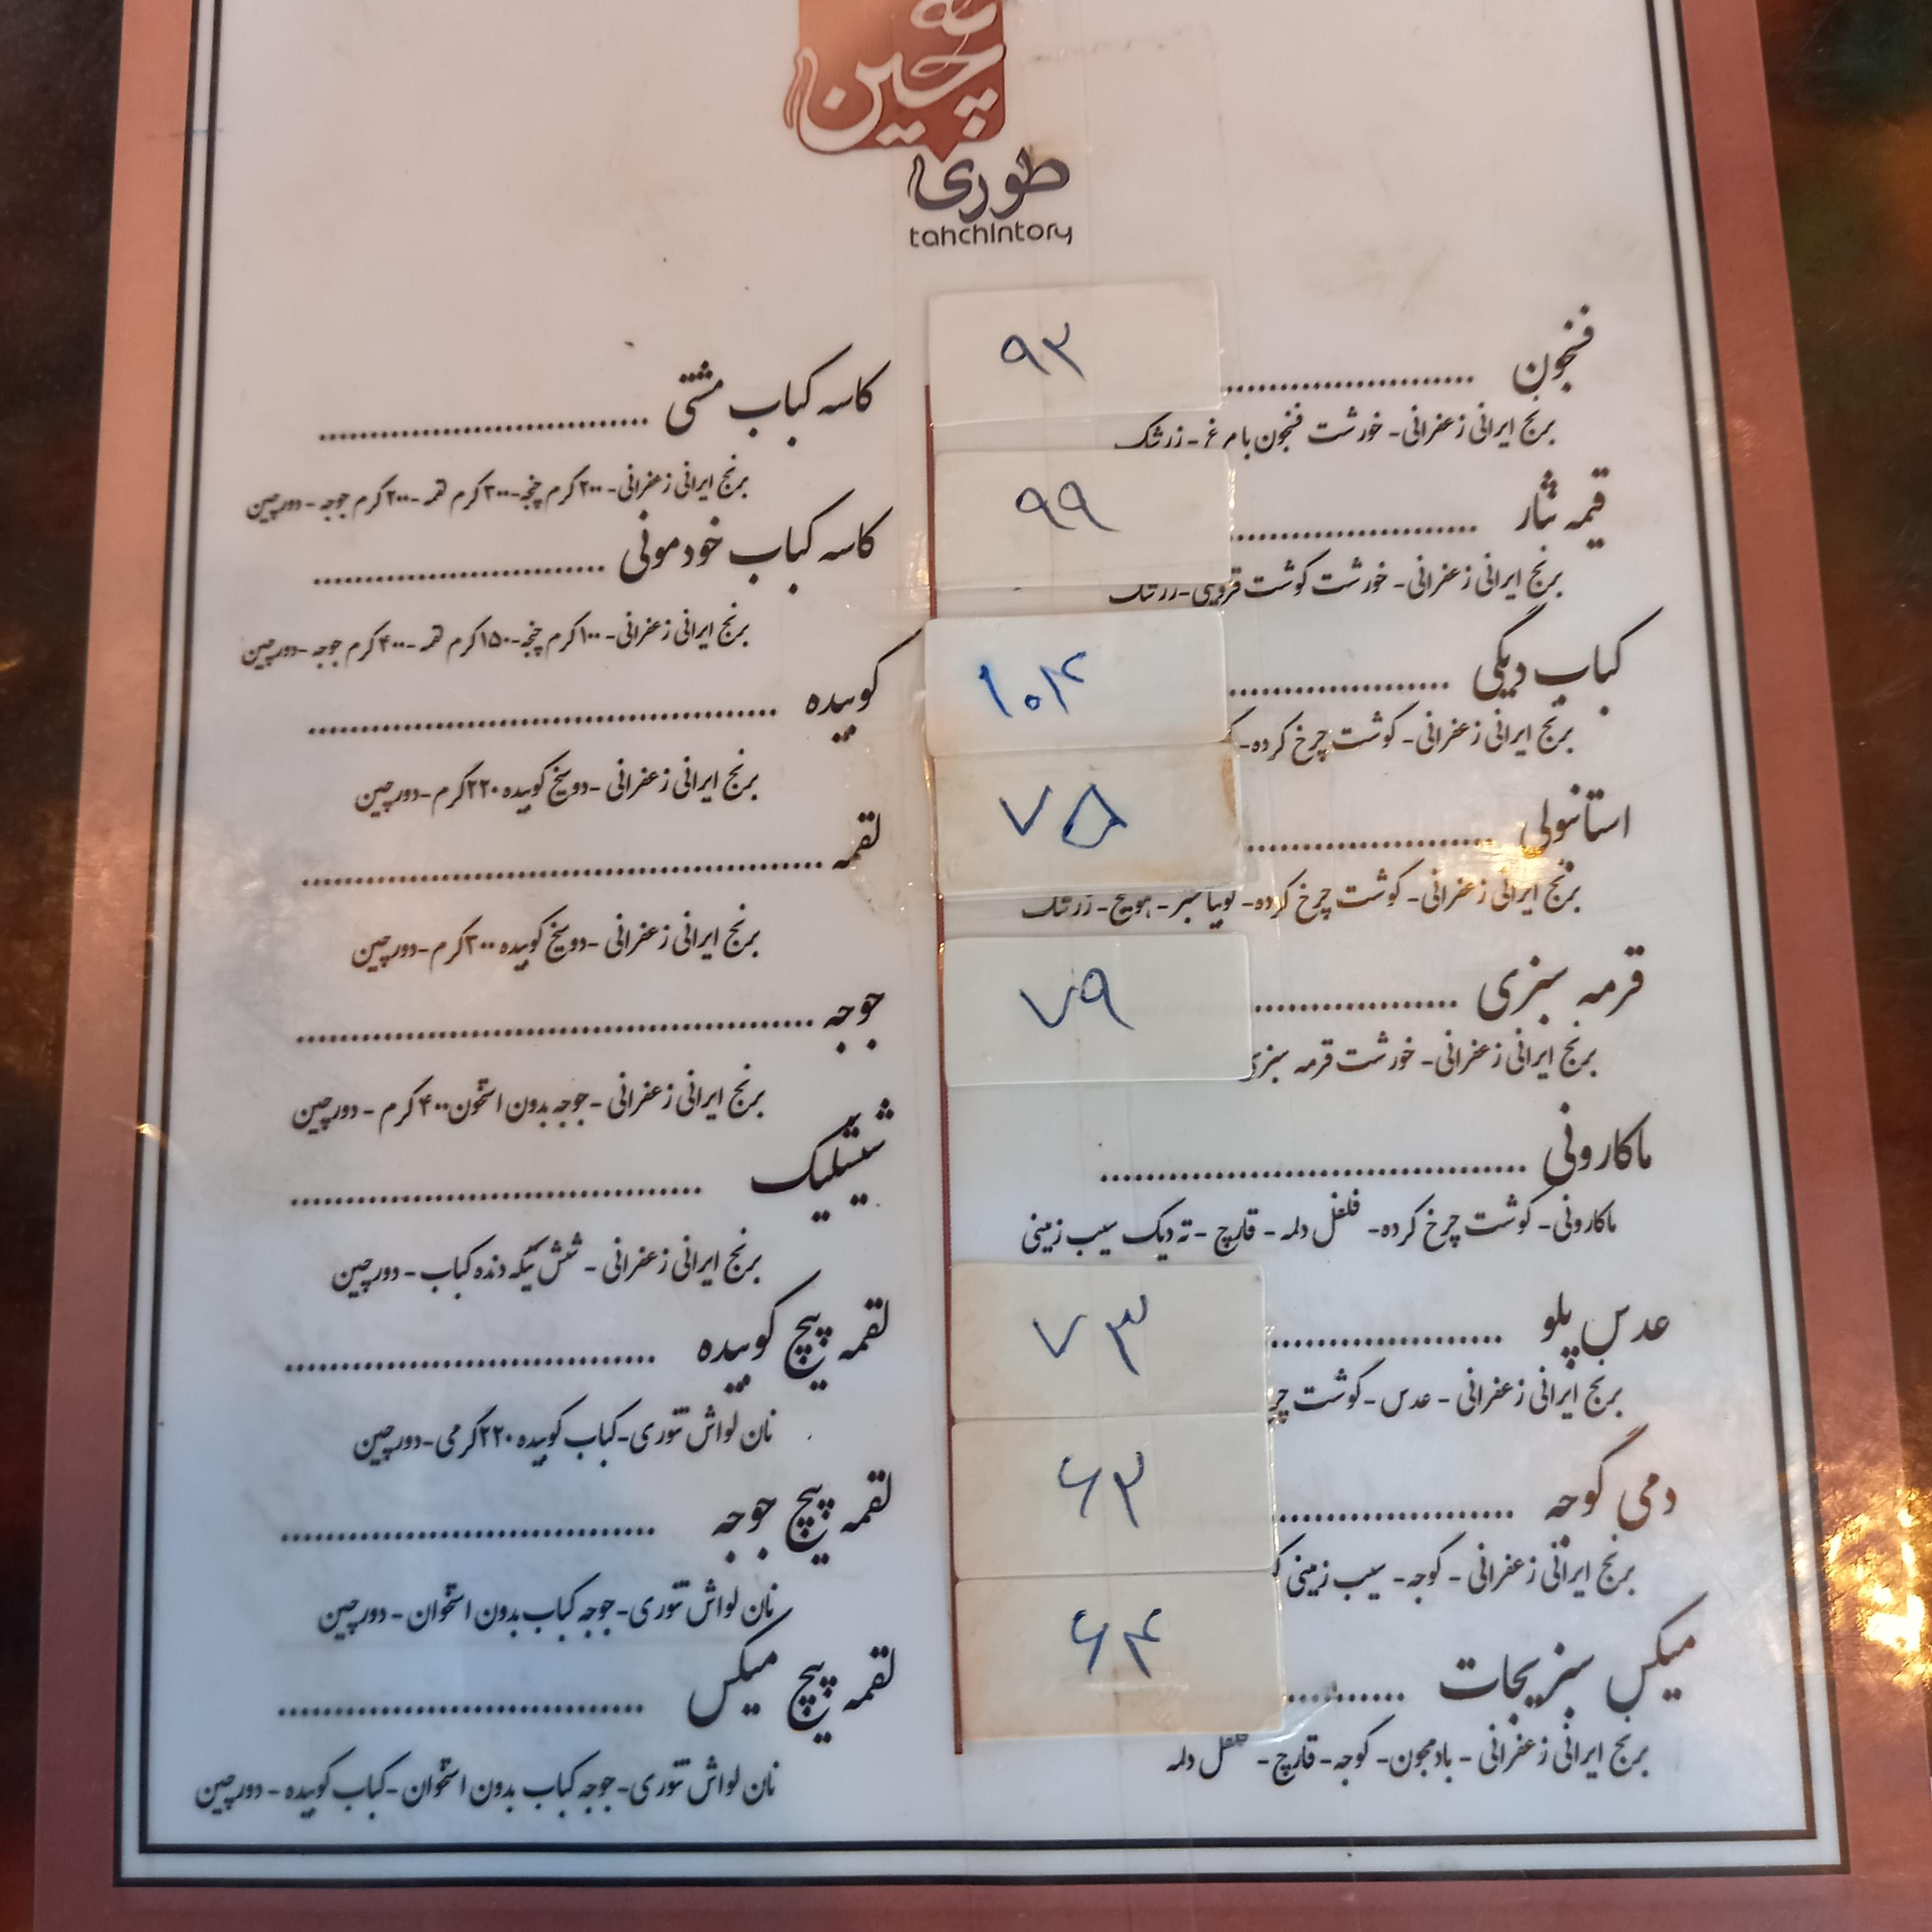 ته
چین
طوری
tahchintory
فنجون ........................ ۹۳
برنج ایرانی زعفرانی- خورشت فنجون با مرغ - زرشک
قیمه نثار ........................ ۹۹
برنج ایرانی زعفرانی- خورشت گوشت قزوینی-زرشک
کباب دیگی ..................... ۱۰۴
برنج ایرانی زعفرانی- گوشت چرخ کرده-
استانبولی ........................ ۷۵
برنج ایرانی زعفرانی- گوشت چرخ کرده- لوبیا سبز - هویج - زرشک
قرمه سبزی ................... ۷۹
برنج ایرانی زعفرانی- خورشت قرمه سبزی
ماکارونی ........................................
ماکارونی- گوشت چرخ کرده- فلفل دلمه - قارچ - ته دیگ سیب زمینی
عدس پلو ...................... ۷۳
برنج ایرانی زعفرانی - عدس - گوشت
دمی گوجه ....................... ۶۳
برنج ایرانی زعفرانی - گوجه- سیب زمینی
میکس سبزیجات ............ ۶۴
برنج ایرانی زعفرانی - بادمجون- گوجه- قارچ - فلفل دلمه
کاسه کباب مشتی ................................
برنج ایرانی زعفرانی- ۲۰۰ گرم چنجه-۳۰۰ گرم لقمه -۲۰۰ گرم جوجه - دورچین
کاسه کباب خودمونی ............................
برنج ایرانی زعفرانی- ۱۰۰ گرم چنجه-۱۵۰ گرم لقمه -۴۰۰ گرم جوجه -دورچین
کوبیده .............................................
برنج ایرانی زعفرانی -دوسیخ کوبیده ۲۲۰ گرم-دورچین
لقمه ..................................................
برنج ایرانی زعفرانی -دوسیخ کوبیده ۳۰۰ گرم-دورچین
جوجه .................................................
برنج ایرانی زعفرانی -جوجه بدون استخون ۴۰۰ گرم - دورچین
شیشلیک .......................................
برنج ایرانی زعفرانی - شش تیکه دنده کباب - دورچین
لقمه پیچ کوبیده ...................................
نان لواش تنوری-کباب کوبیده ۲۲۰ گرمی-دورچین
لقمه پیچ جوجه ...................................
نان لواش تنوری-جوجه کباب بدون استخوان - دورچین
لقمه پیچ میکس ..................................
نان لواش تنوری-جوجه کباب بدون استخوان -کباب کوبیده - دورچین